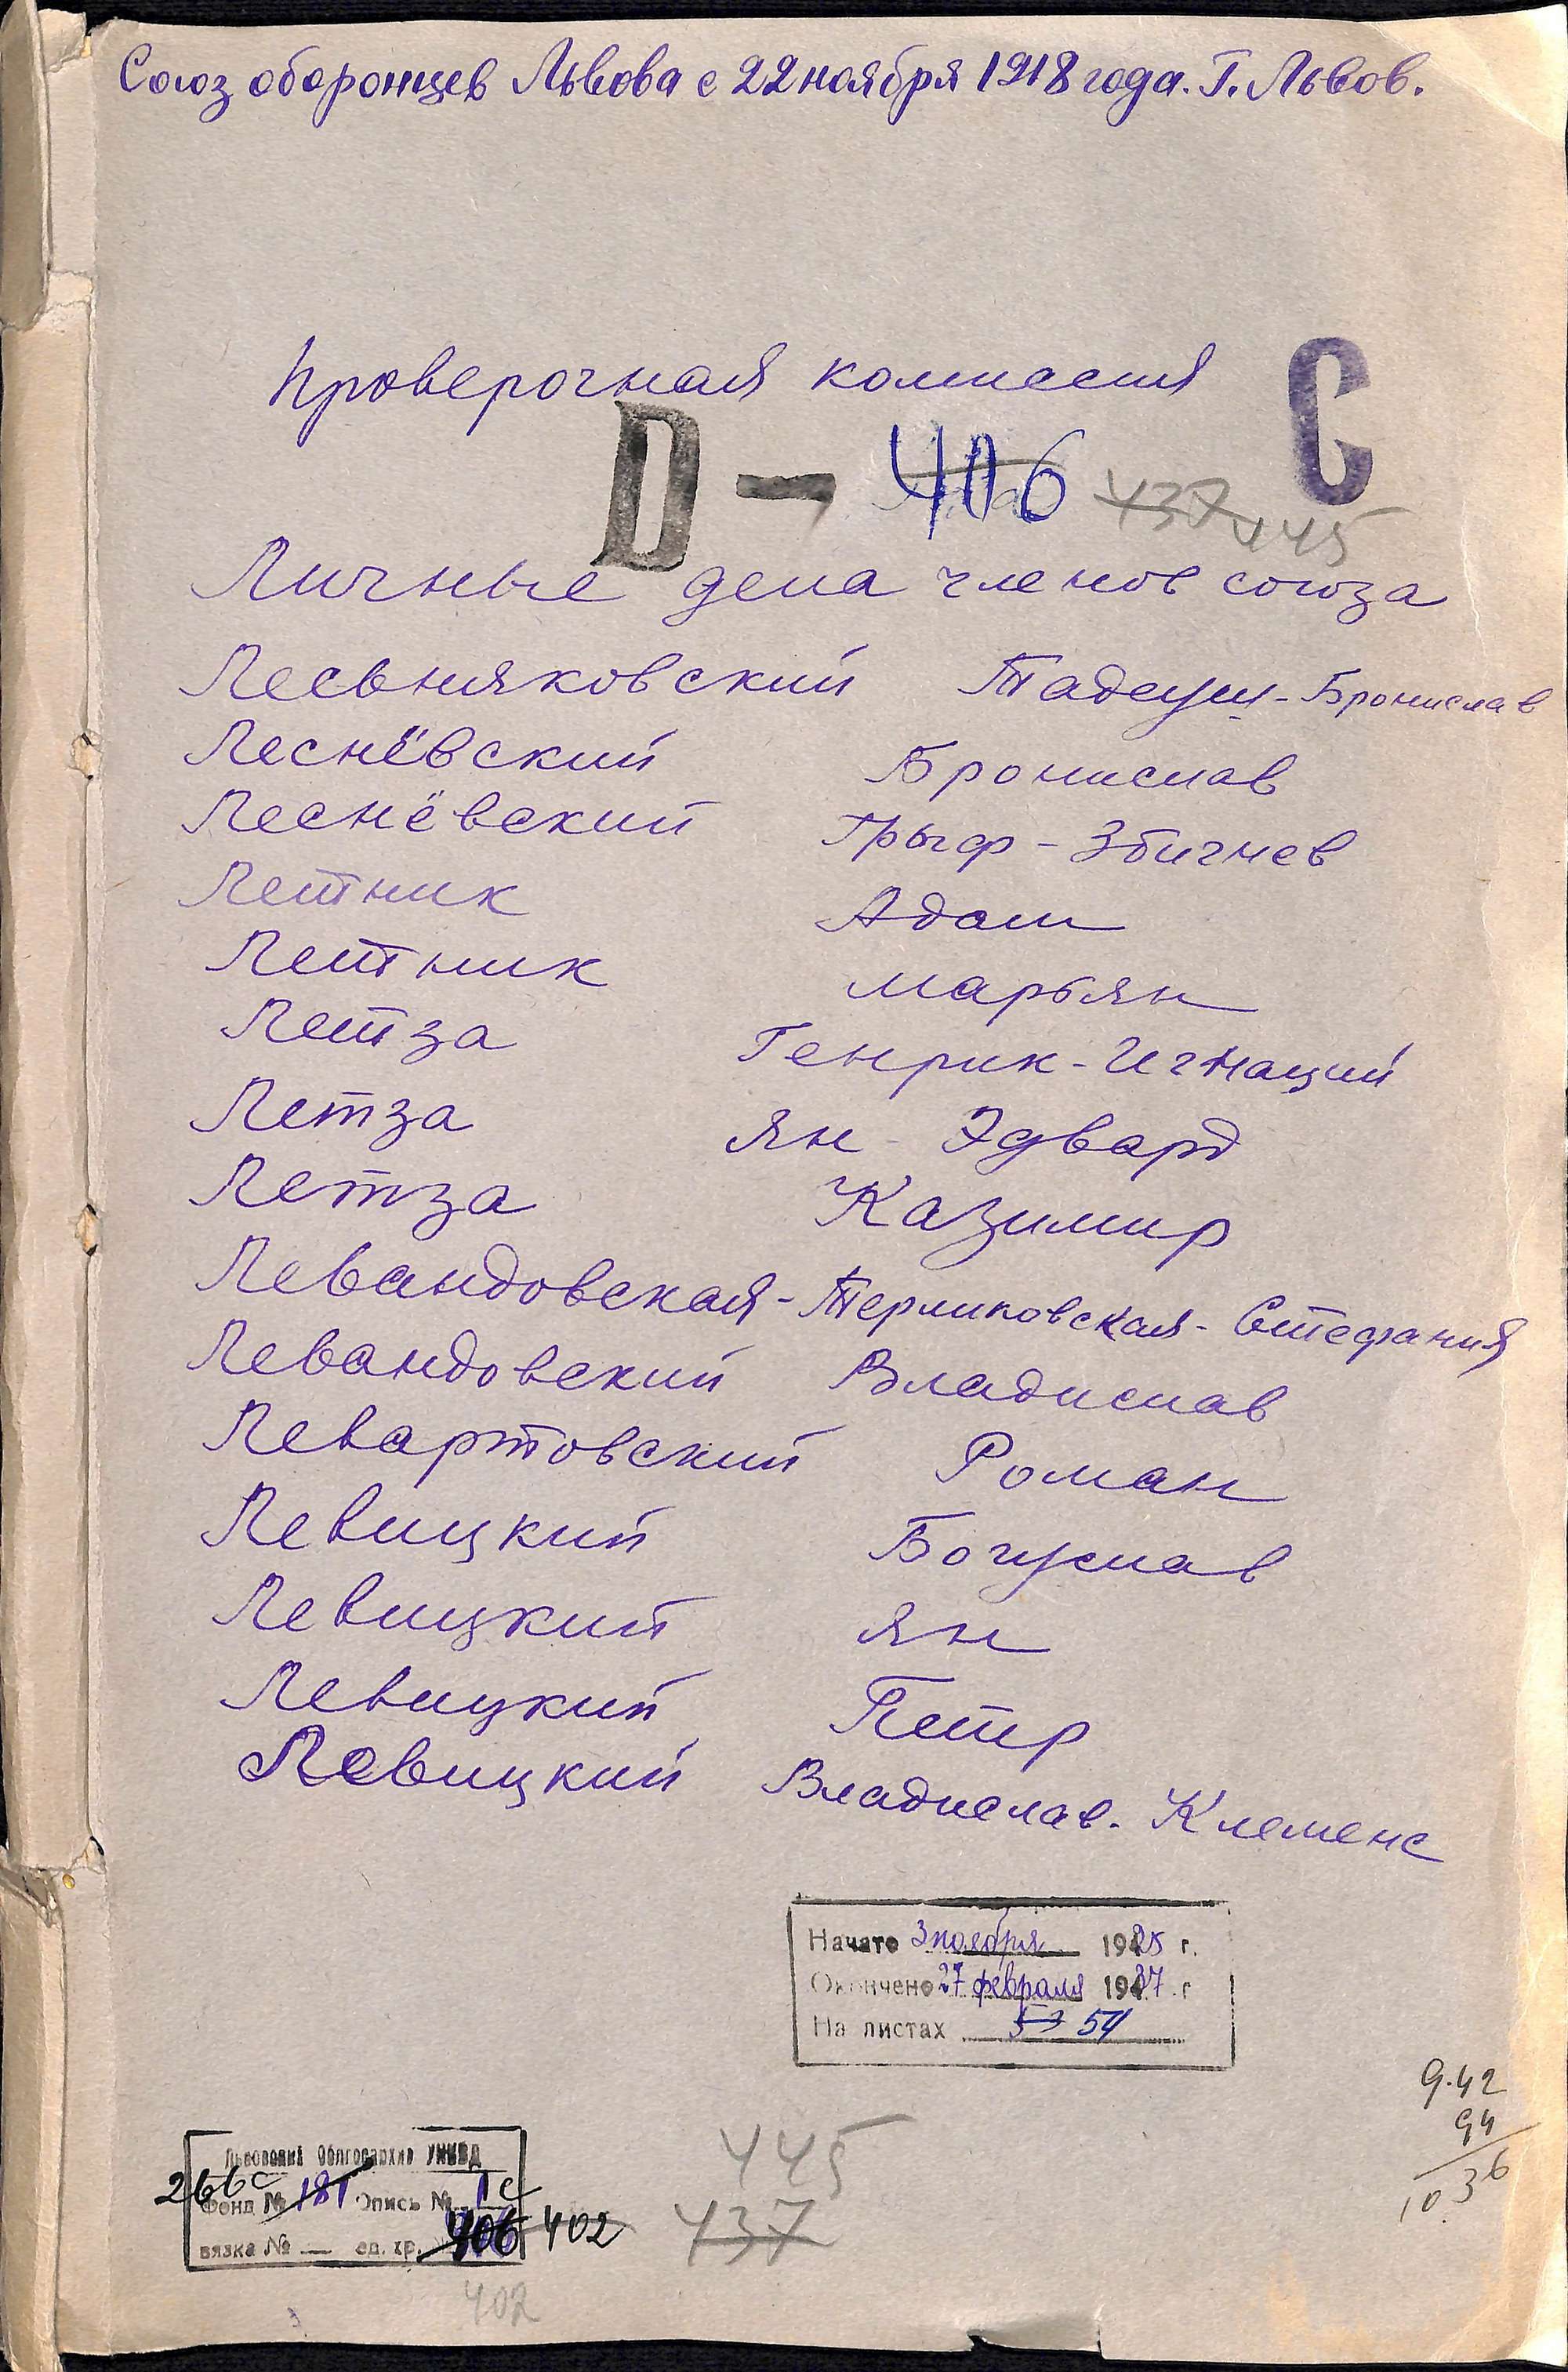 Союз оборонцев Львова с 22 ноября 1918 года. Г. Львов.
Проверочная комиссия
С
D — 406 437 445
Личные дела членов союза
Лесьняковский Тадеуш - Бронислав
Леснёвский Бронислав
Леснёвский Грыф - Збигнев
Летник Адам
Летник Марьян
Летза Генрик - Игнаций
Летза Ян - Эдвард
Летза Казимир
Левандовская - Терликовская - Стефания
Левандовский Владислав
Левартовский Роман
Левицкий Богуслав
Левицкий Ян
Левицкий Петр
Левицкий Владислав - Клеменс
Начато 3 ноября 1925 г.
Окончено 27 февраля 1937 г
На листах 53 54
9.42
94
10 36
Львовский Облгосархив УНКВД
266с Фонд № 181 Опись № 1с
вязка № — ед. хр. 406 402
445
437
402